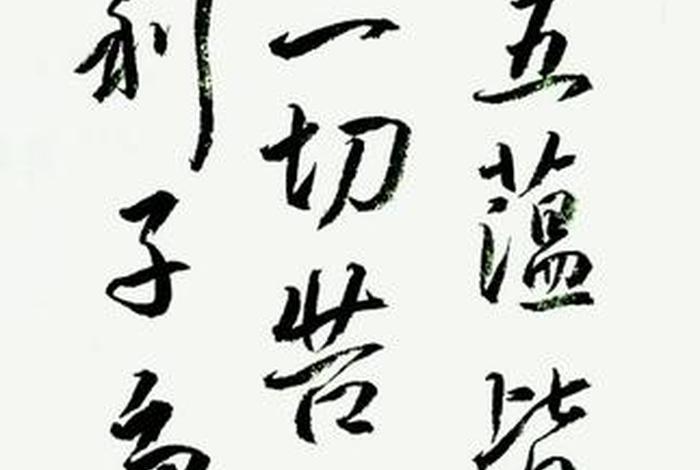 五蕴皆
一切苦
利子色